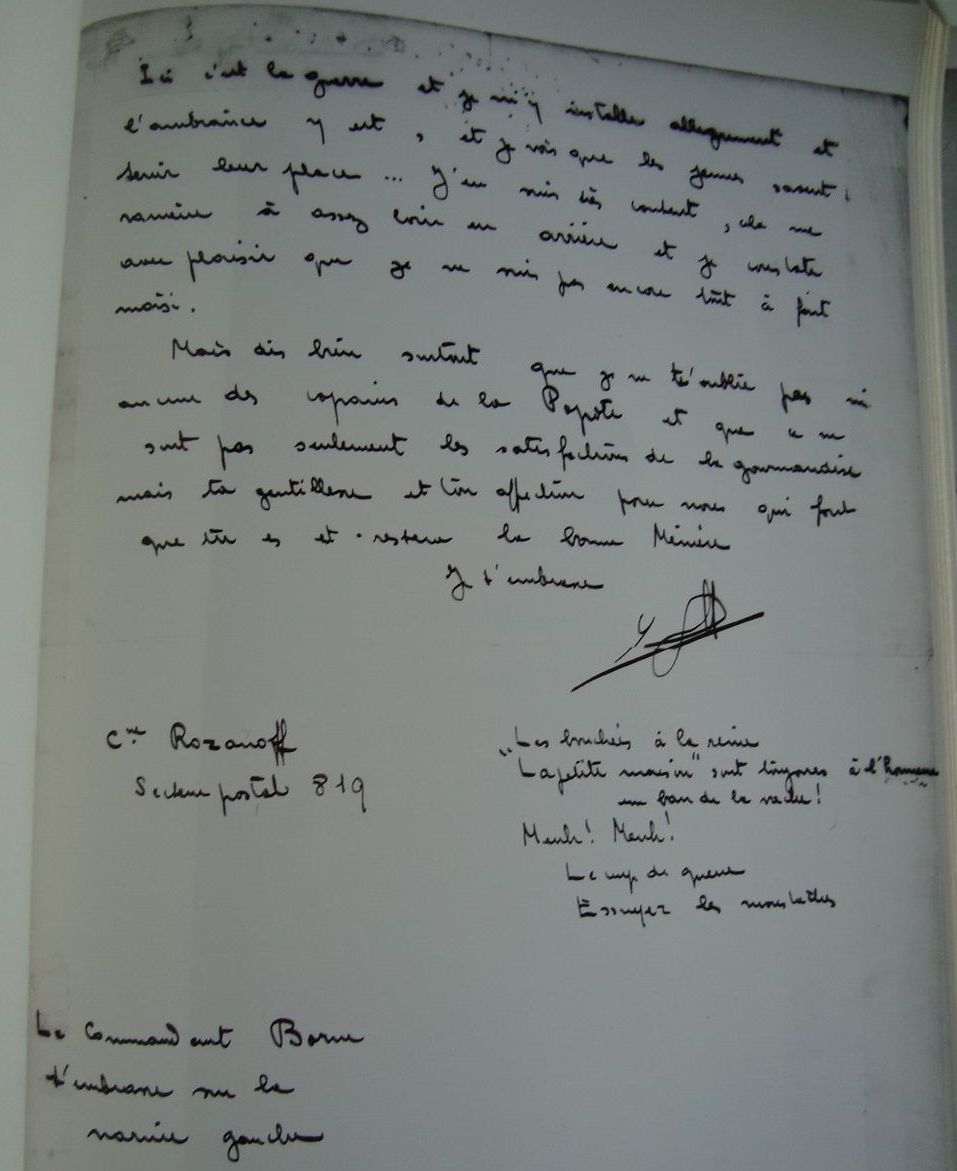 Ici c'est la guerre et je m'y installe allegrement et
l'ambiance y est, et je vois que les jeunes savent
tenir leur place... J'en suis très content, cela me
ramène à assez loin en arrière et je constate
avec plaisir que je ne suis pas encore tout à fait
moisi.
Mais dis bien surtout que je ne t'oublie pas ni
aucun des copains de la Popote et que ce ne
sont pas seulement les satisfactions de la gourmandise
mais ta gentillesse et ton affection pour nous qui font
que tu es et restera la bonne Mémère
Je t'embrasse
Cne Rozanoff
Secteur postal 819
"Les bouchées à la reine
La petite maison" sont toujours à l'honneur
au ban de la vache!
Meuh! Meuh!
Le coup de queue
Essuyez les moustaches
Le Commandant Borne
t'embrasse sur la
narine gauche